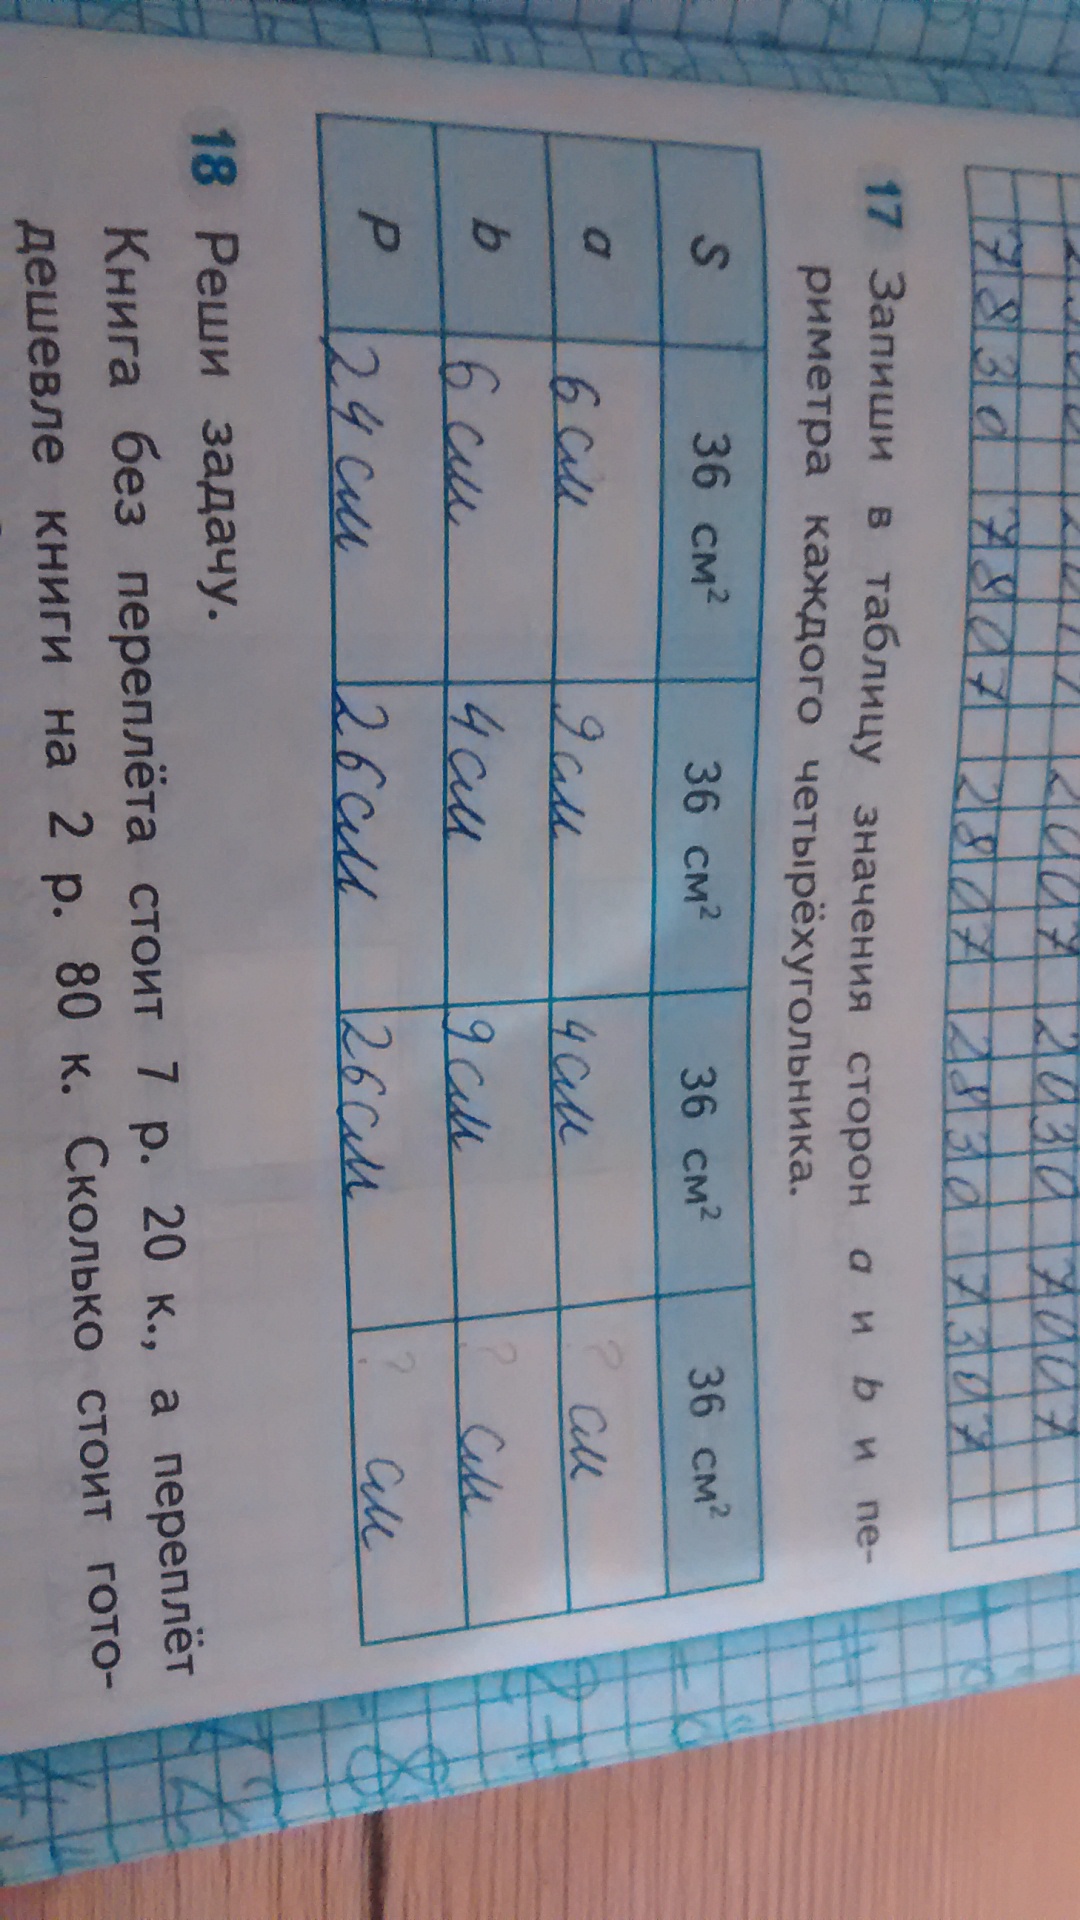 7830 7807 2807 2830 7307
17 Запиши в таблицу значения сторон a и b и пе-
риметра каждого четырёхугольника.
S 36 см² 36 см² 36 см² 36 см²
a 6 см 9 см 4 см ? см
b 6 см 4 см 9 см ? см
P 24 см 26 см 26 см ? см
18 Реши задачу.
Книга без переплёта стоит 7 р. 20 к., а переплёт
дешевле книги на 2 р. 80 к. Сколько стоит гото-